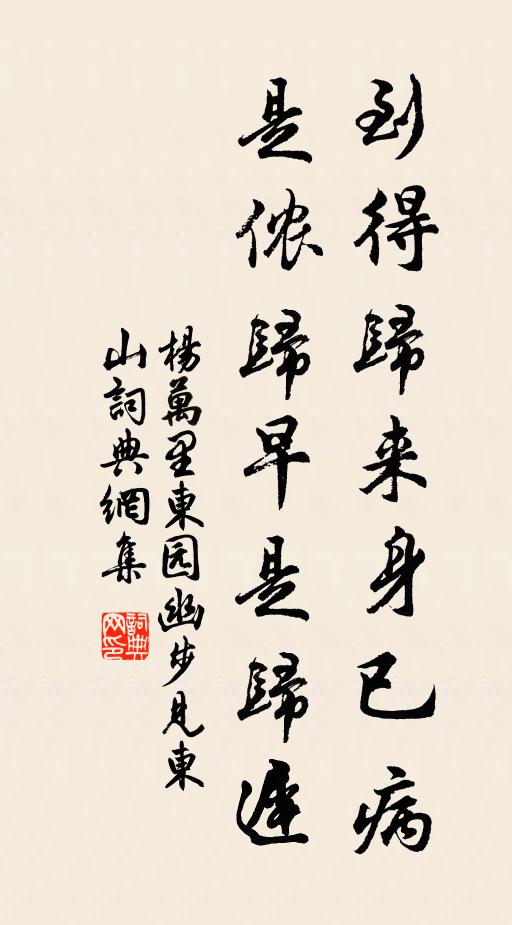 到得歸来身已病
是侬歸早是歸遲
楊萬里東园幽步見東
山詞典網集
詞典网印